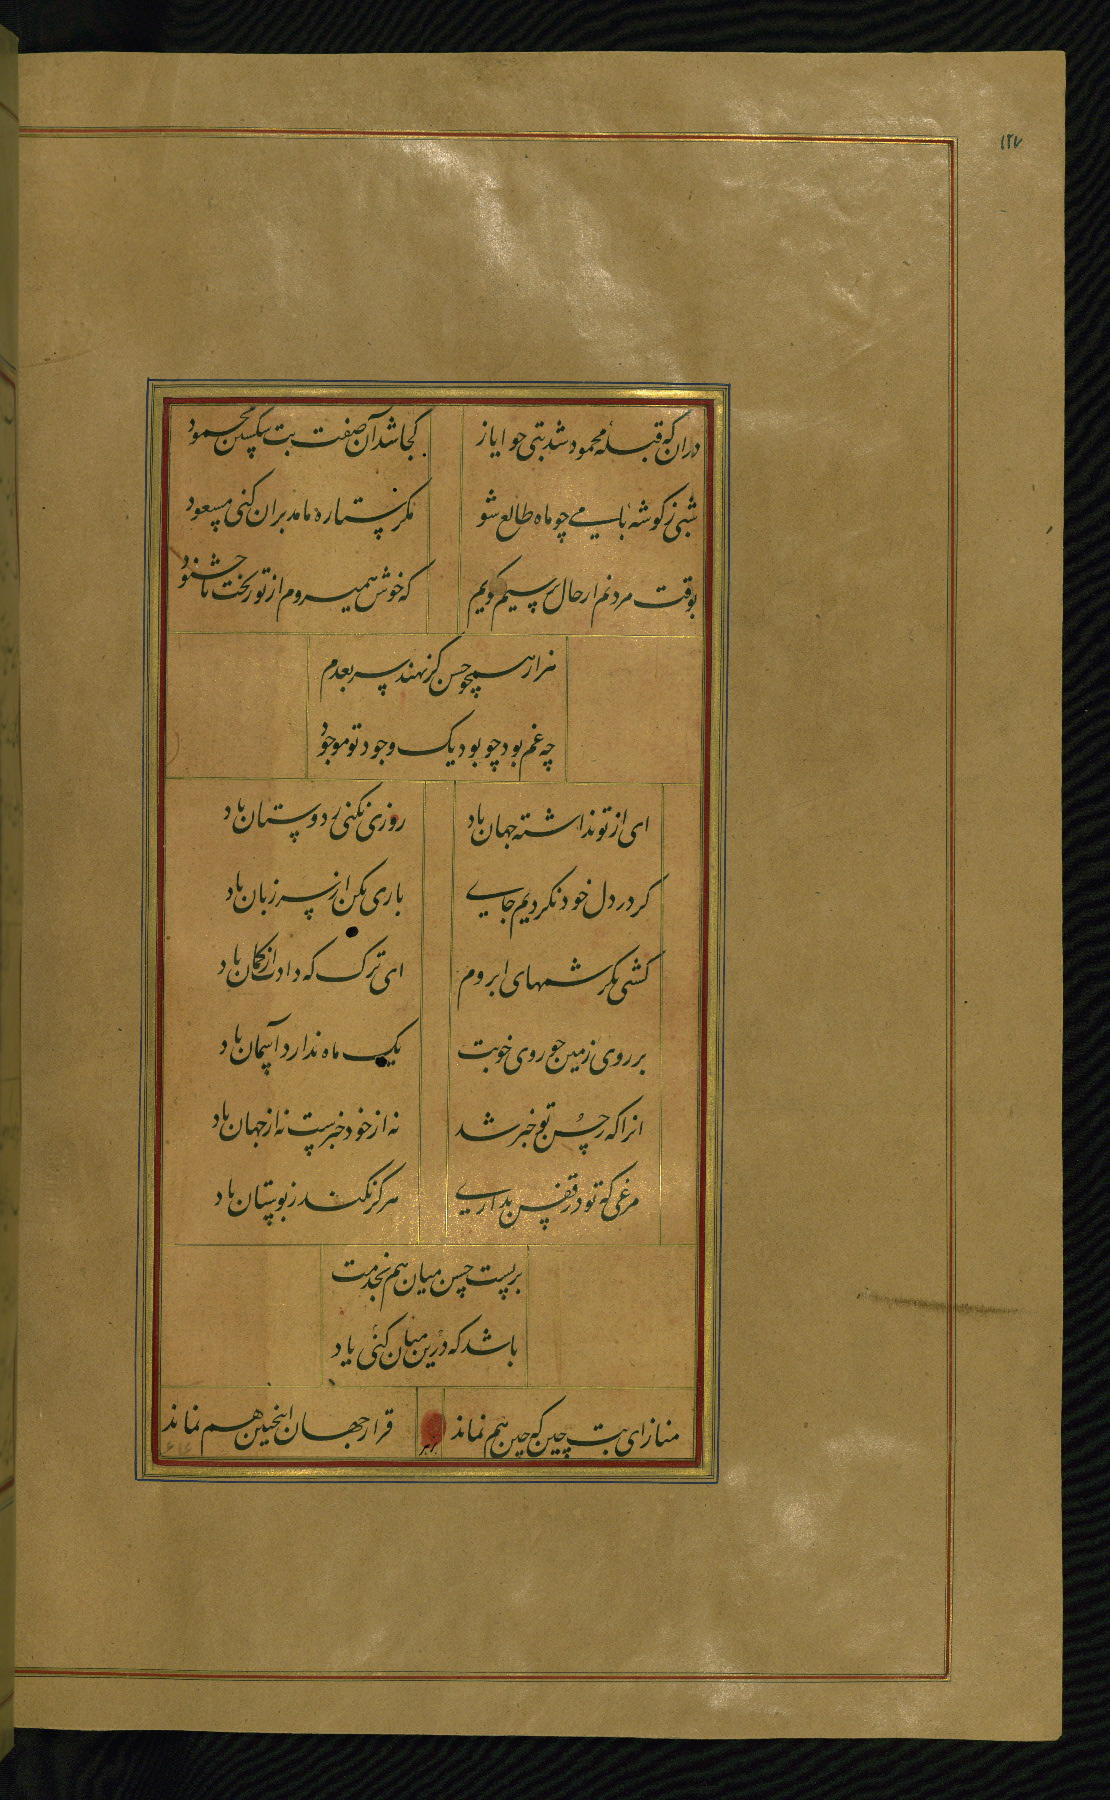 ۱۲۷
دران که قبلهٔ محمود شد بتی چو ایاز
کجا شد آن صفت بت شکستن محمود
شبی ز کوشه بامی چو ماه طالع شو
مکر ستاره ما مدبران کنی مسعود
بوقت مردنم ار حال پرسیم کویم
که خوش همیروم از تو بخت ناخشنود
هزار همچو حسن کر نهند سر بعدم
چه غم بود چو بود یک وجود تو موجود
ای از تو نداشته جهان یاد
روزی نکنی ز دوستان یاد
کر در دل خود نکردیم جای
باری بکن از سر زبان یاد
کشی بکرشمهای ابروم
ای ترک که دادت از کمان یاد
بر روی زمین چو روی خوبت
یک ماه ندارد آسمان یاد
انرا که ز حسن تو خبر شد
نه از خود خبرست نه از جهان یاد
مرغی که تو در قفس بداری
هرکز نکند ز بوستان یاد
بربست حسن میان هم بخدمت
باشد که درین میان کنی یاد
مناز ای بت چین که چین هم نماند
قرار جهان اینچنین هم نماند